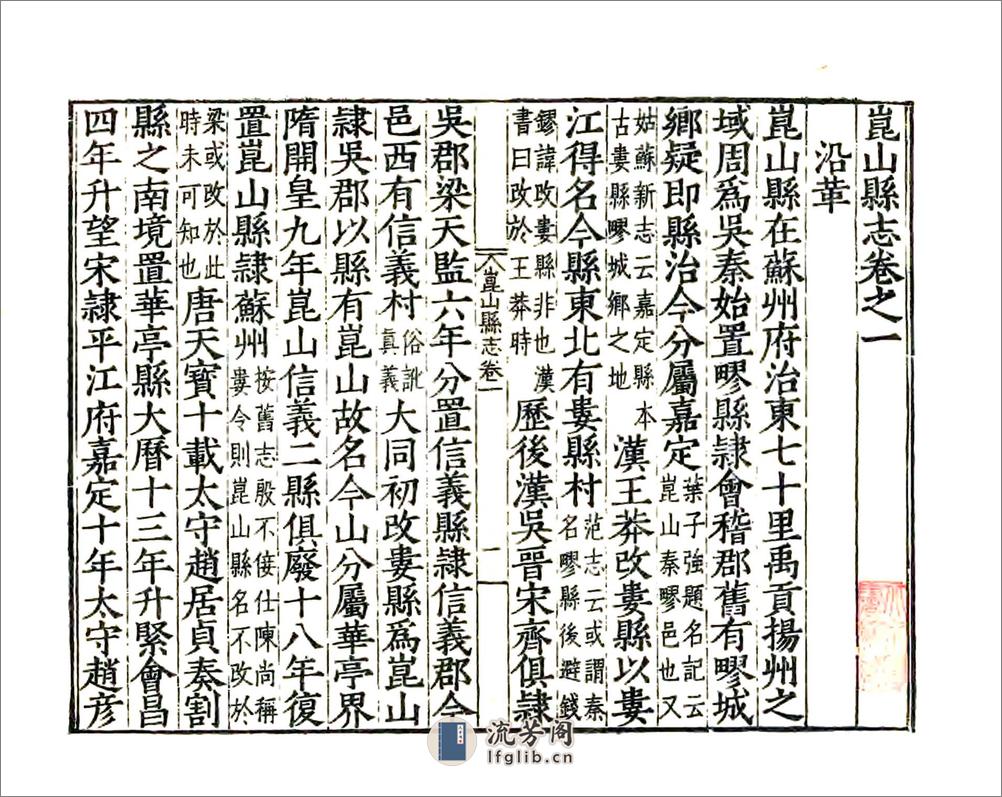 崑山縣志卷之一
沿革
崑山縣在蘇州府治東七十里禹貢揚州之
域周爲吳秦始置疁縣隷會稽郡舊有疁城
鄉疑即縣治今分屬嘉定葉子強題名記云
崑山秦疁邑也又
姑蘇新志云嘉定縣本
古婁縣疁城鄉之地
漢王莽改婁縣以婁
江得名今縣東北有婁縣村范志云或謂秦
名疁縣後避錢
鏐諱改婁縣非也漢
書曰改於王莽時
歷後漢吳晉宋齊俱隷
崑山縣志卷一
一
吳郡梁天監六年分置信義縣隷信義郡今
邑西有信義村俗訛
真義
大同初改婁縣爲崑山
隷吳郡以縣有崑山故名今山分屬華亭界
隋開皇九年崑山信義二縣俱廢十八年復
置崑山縣隷蘇州按舊志殷不佞仕陳尚稱
婁令則崑山縣名不改於
梁或改於此
時未可知也
唐天寳十載太守趙居貞奏割
縣之南境置華亭縣大曆十三年升緊會昌
四年升望宋隷平江府嘉定十年太守趙彦
流芳阁
lfglib.cn